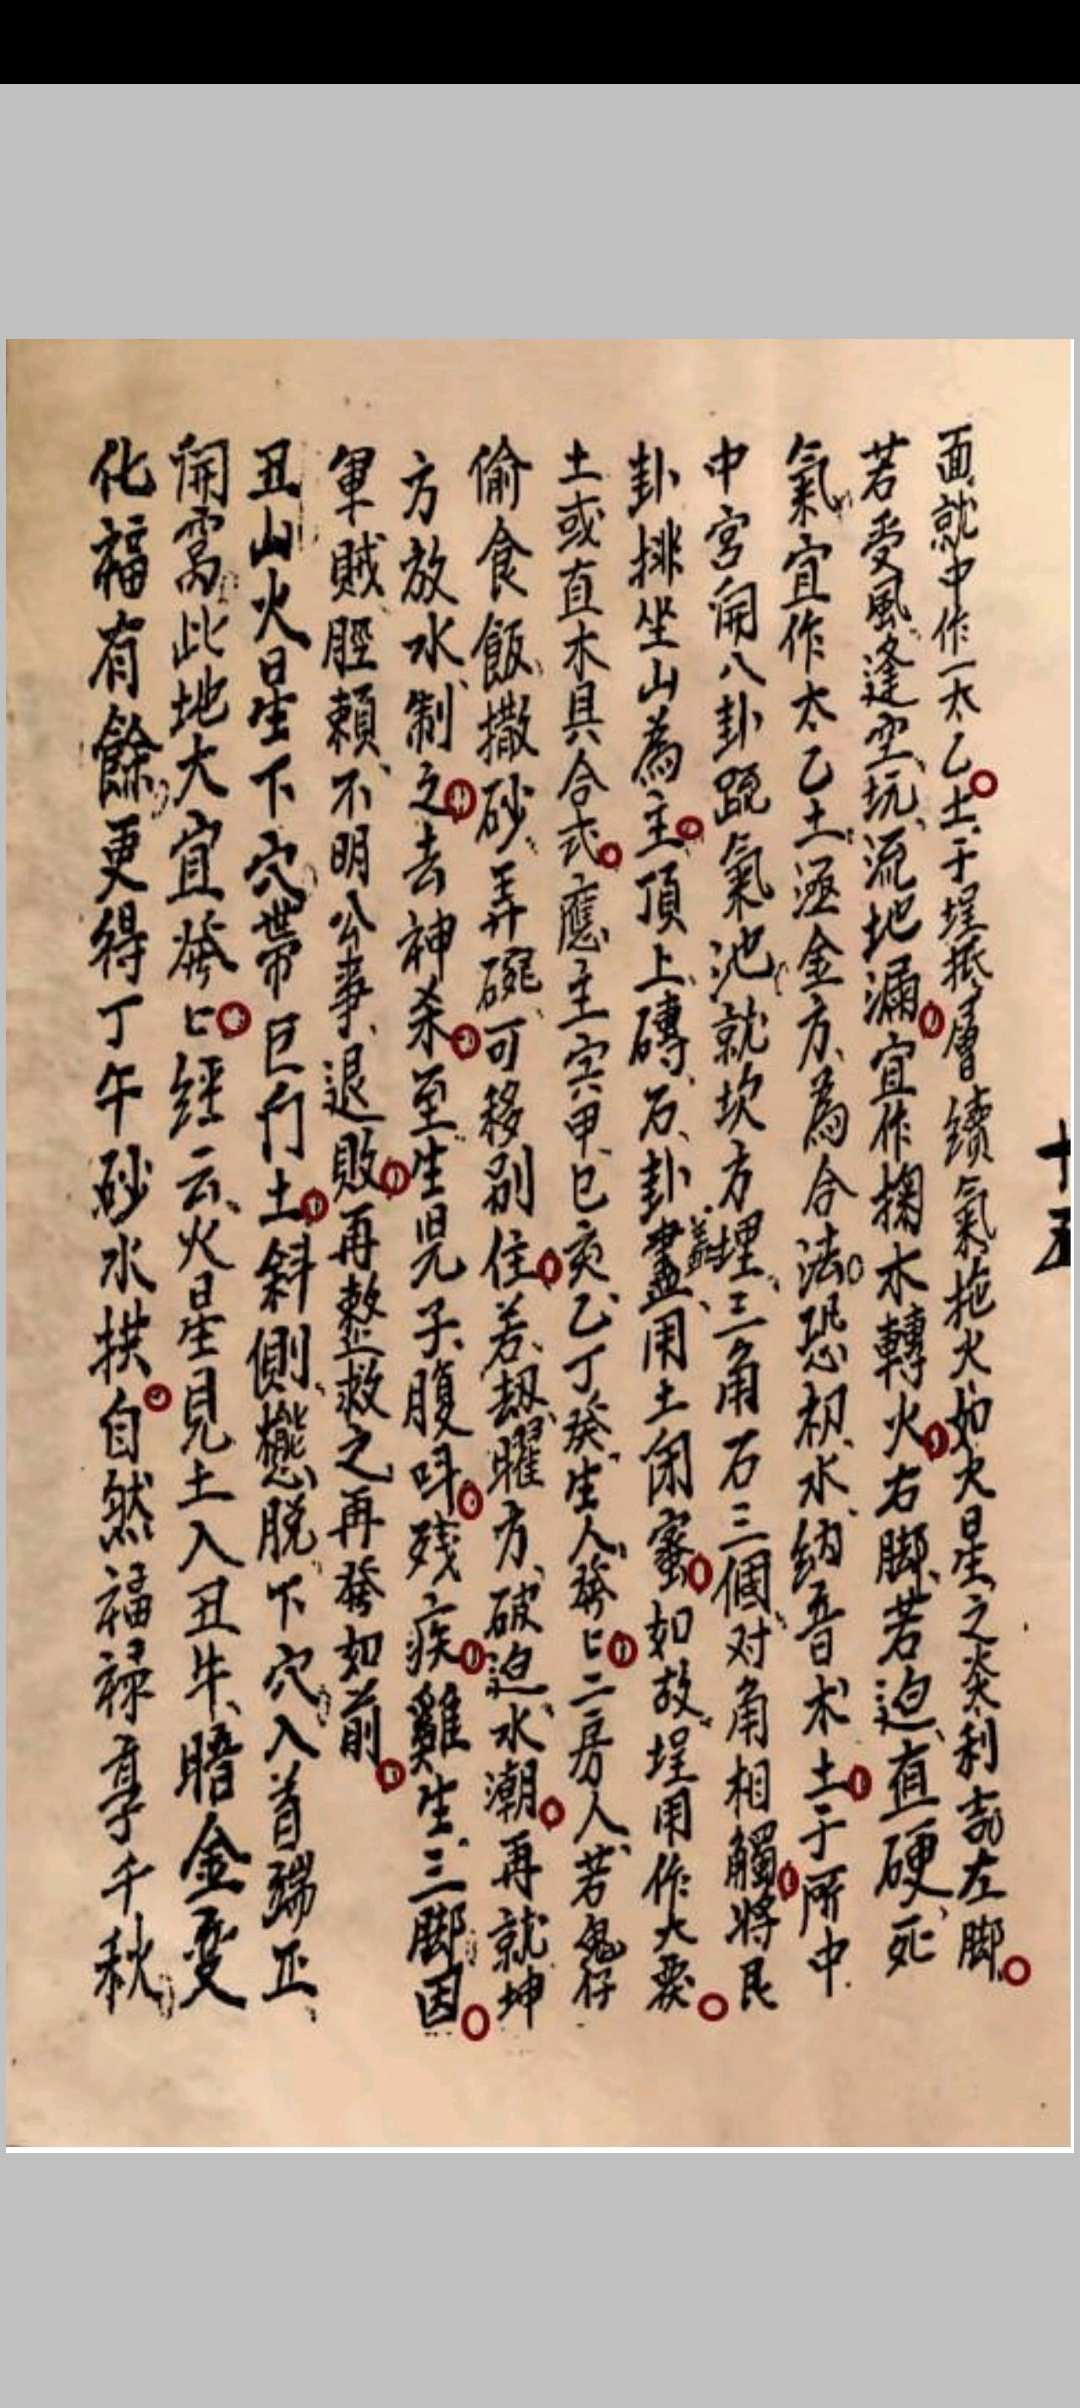 十五
面就中作一太乙土于埕抵層續氣拖火如火星之炎利記左脚
若受風逢空坑流地漏宜作掬木轉火右脚若迫直硬死
氣宜作太乙土逕金方為合法恐初水納吾木土于所中
中宮開八卦號氣池就坎方埋三角石三個对角相觸將艮
卦排坐山為主頂上磚石卦盡蓋用土闭蜜如故埕用作大
土或直木具合式應主寅甲巳亥乙丁癸生人發匕二房人若鬼仔
偷食飯撒砂弄碗可移別住若刼曜方破迫水潮再就坤
方放水制之去神杀至生児子腹呌残疾雞生三脚因
軍賊脛賴不明公事退敗再整救之再發如前
丑山火星下穴帶巨门土斜側脱下穴入首端正
開窩此地大宜發匕經云火星見土入丑牛暗金变
化福有餘更得丁午砂水拱自然福祿享千秋